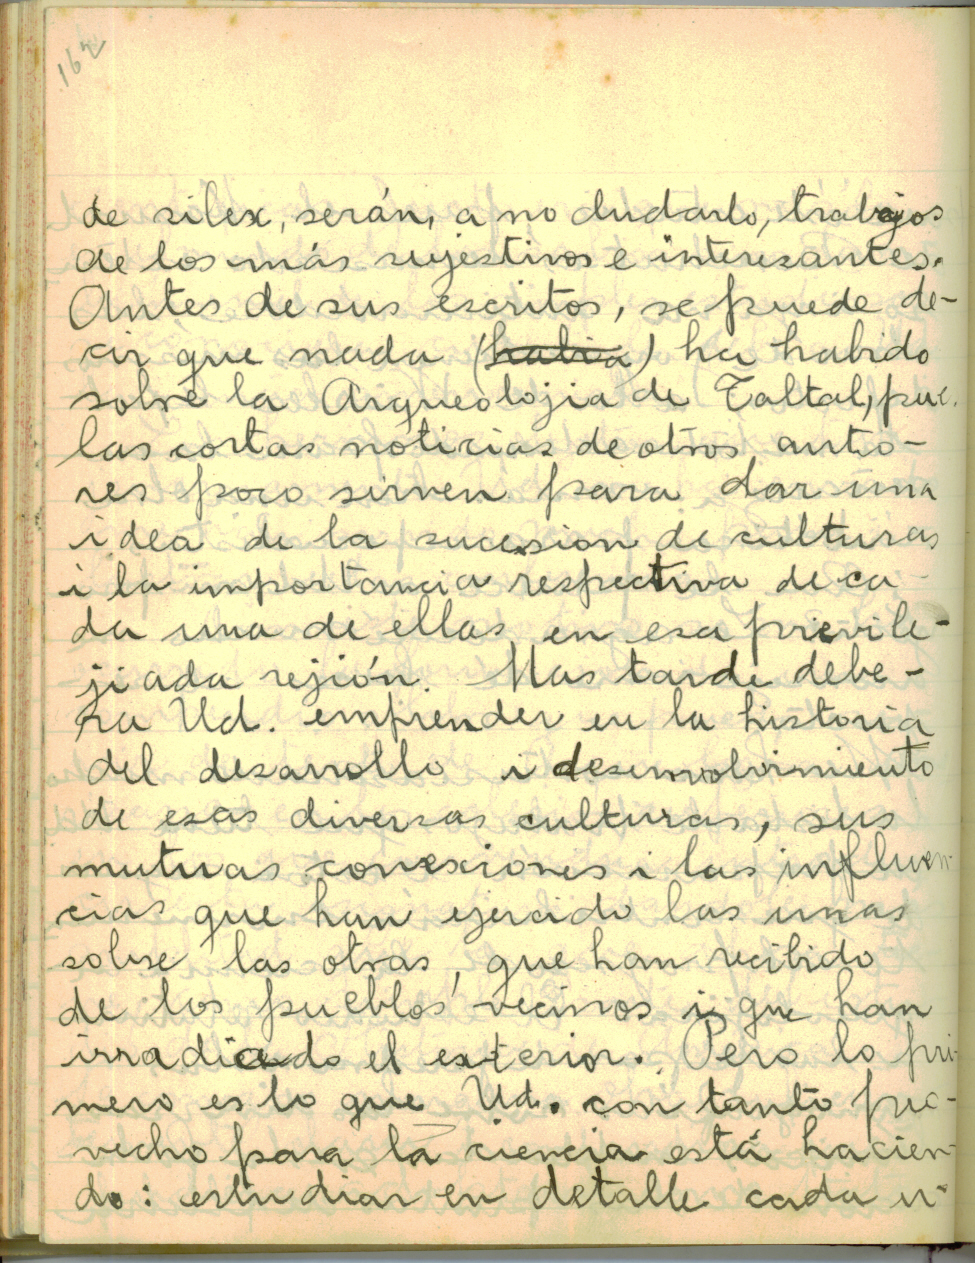 162
de silex, serán, a no dudarlo, trabajos
de los más sujestivos e interesantes.
Antes de sus escritos, se puede de-
cir que nada (habia) ha habido
sobre la Arqueolojia de Taltal, pue.
las cortas noticias de otros auto-
res poco sirven para dar una
idea de la sucesion de culturas
i la importancia respectiva de ca-
da una de ellas en esa previle-
jiada rejión. Mas tarde debe-
ra Ud. emprender en la historia
del desarrollo i desenvolvimiento
de esas diversas culturas, sus
mutuas conexiones i las influen-
cias que han ejercido las unas
sobre las otras, que han recibido
de los pueblos vecinos i que han
irradiado el exterior. Pero lo pri-
mero es lo que Ud. con tanto pro-
vecho para la ciencia está hacien-
do: estudiar en detalle cada u-